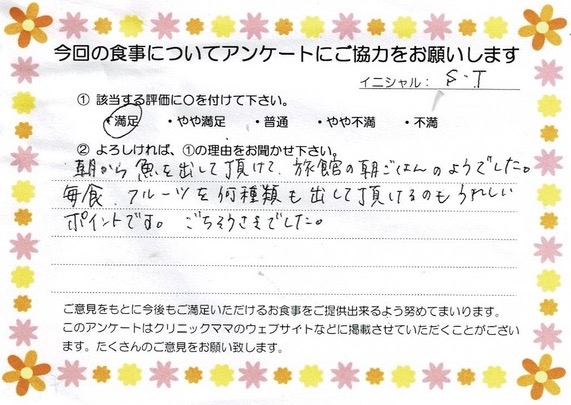 今回の食事についてアンケートにご協力をお願いします
イニシャル： S・T
① 該当する評価に○を付けて下さい。
・満足 ・やや満足 ・普通 ・やや不満 ・不満
② よろしければ、①の理由をお聞かせ下さい。
朝から魚を出して頂けて、旅館の朝ごはんのようでした。
毎食、フルーツを何種類も出して頂けるのもうれしい
ポイントです。 ごちそうさまでした。
ご意見をもとに今後もご満足いただけるお食事をご提供出来るよう努めてまいります。
このアンケートはクリニックママのウェブサイトなどに掲載させていただくことがござい
ます。たくさんのご意見をお願い致します。